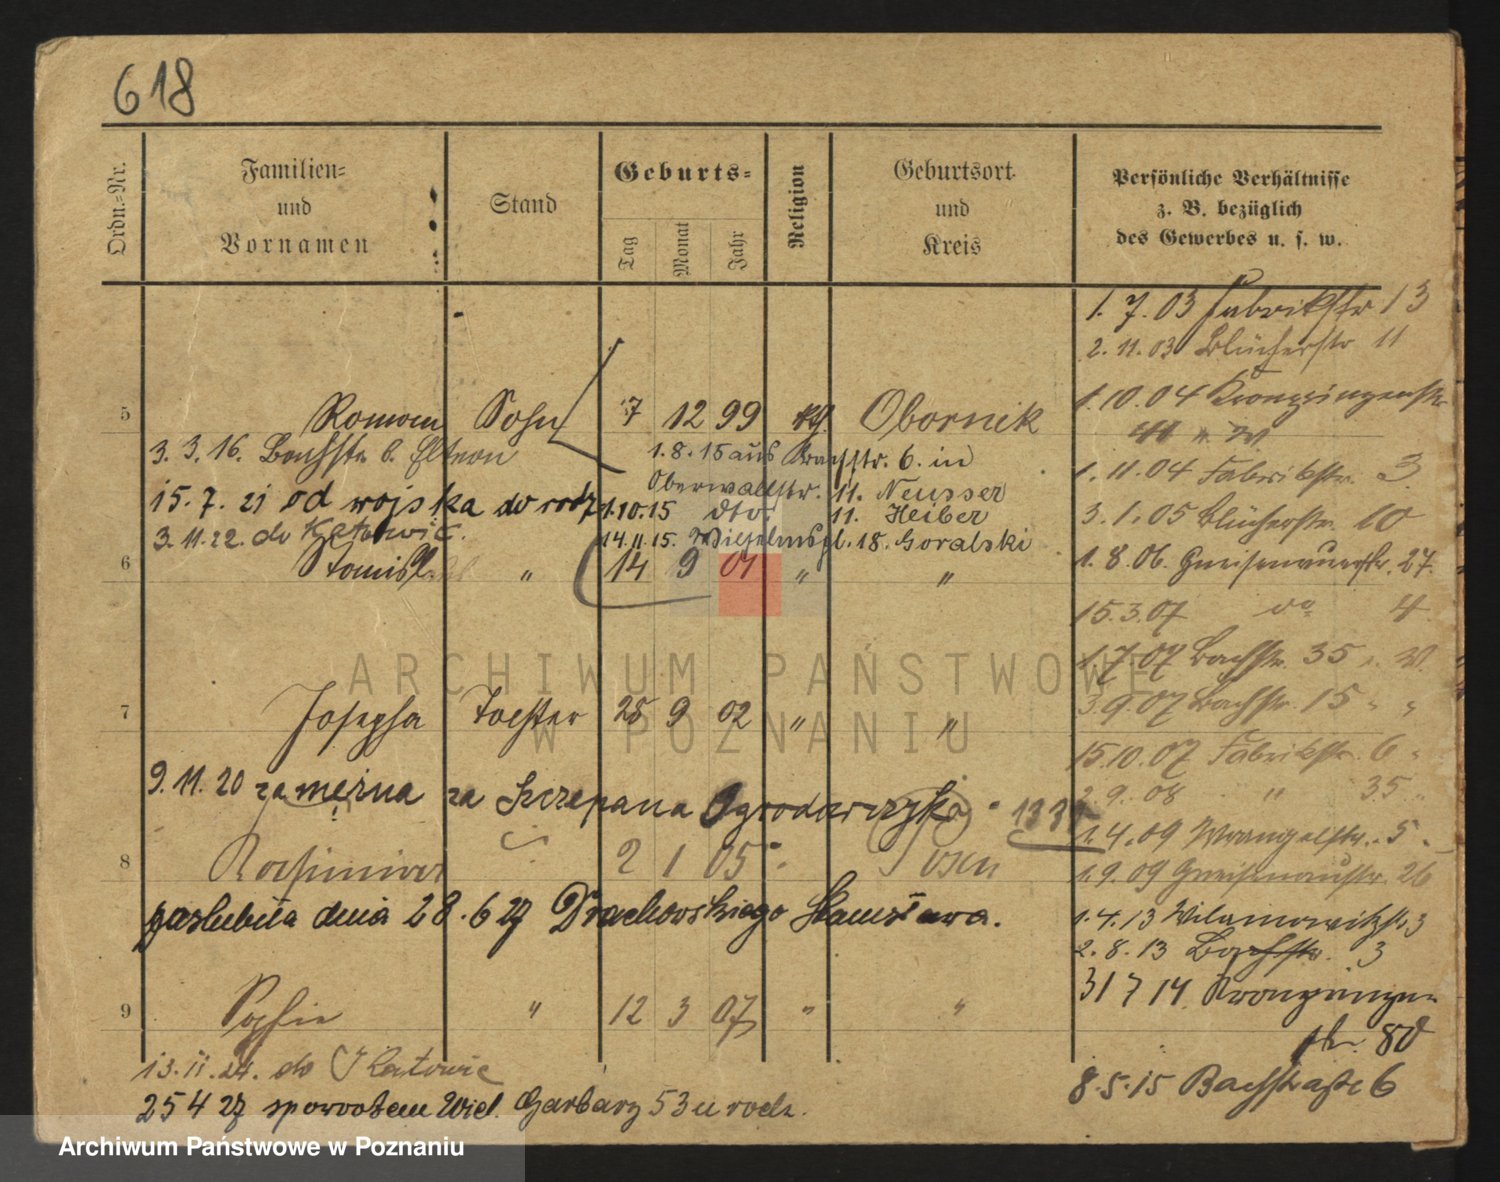 618
Ordn.-Nr.
Familien-
und
Vornamen
Stand
Geburts-
Tag
Monat
Jahr
Religion
Geburtsort
und
Kreis
Persönliche Verhältnisse
z. B. bezüglich
des Gewerbes u. s. w.
1. 7. 03 Fabrikstr 13
2. 11. 03 Blücherstr 11
5 Roman Sohn 7 12 99 Obornik
1. 10. 04 Kronprinzenstr
3. 3. 16. Bachstr b. Eltern
1. 8. 15 aus Bachstr. 6. in
Oberwallstr. 11. Neusser
1. 11. 04 Fabrikstr. 3.
15. 7. 21 od wojska do rodz
1.10.15 dto. 11. Heiber
3. 1. 05 Blücherstr. 10
3. 11. 22. do Katowic.
14.11.15. Wilhelmspl. 18. Goralski
6 Stanisl. " 14 9 01 " "
1. 8. 06. Gneisenaustr. 27.
15. 3. 07 do 4.
1. 7. 07 Bachstr. 35 " W.
3. 9. 07 Bachstr. 15 " "
7 Josepha Tochter 28 9 02 " "
15. 10. 07 Fabrikstr. 6 "
9. 11. 20 zamężna za Szczepana Ogrodowczyka
2. 9. 08 " 35 "
1. 4. 09 Wrangelstr. 5 "
8 Kasimira 2 1 05 " Posen
1. 9. 09 Gneisenaustr. 26
poslubiła dnia 28. 6 27 Drachowskiego Stanisława.
1. 4. 13 Wilamowitzstr. 3
2. 8. 13 Bachstr. 3
31 7 14 Kronprinzen
9 Sophie " 12 3 07 " "
str. 80
13. 11. 24. do Katowic
8. 5. 15 Bachstraße 6
25 4 27 spowrotem Wiel. Garbary 53 u rodz.
ARCHIWUM PAŃSTWOWE
W POZNANIU
Archiwum Państwowe w Poznaniu